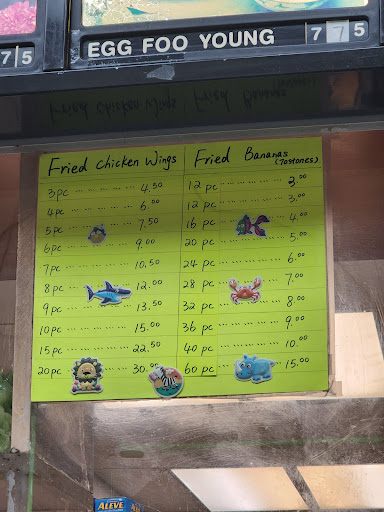 7 5
EGG FOO YOUNG 7 7 5
Fried Chicken Wings
3pc ............ 4.50
4pc ............ 6.00
5pc ............ 7.50
6pc ............ 9.00
7pc ............ 10.50
8pc ............ 12.00
9pc ............ 13.50
10pc ............ 15.00
15pc ............ 22.50
20pc ............ 30.00
Fried Bananas
(Tostones)
12 pc ............ 3.00
12 pc ............ 3.00
16 pc ............ 4.00
20 pc ............ 5.00
24 pc ............ 6.00
28 pc ............ 7.00
32 pc ............ 8.00
36 pc ............ 9.00
40 pc ............ 10.00
60 pc ............ 15.00
ALEVE